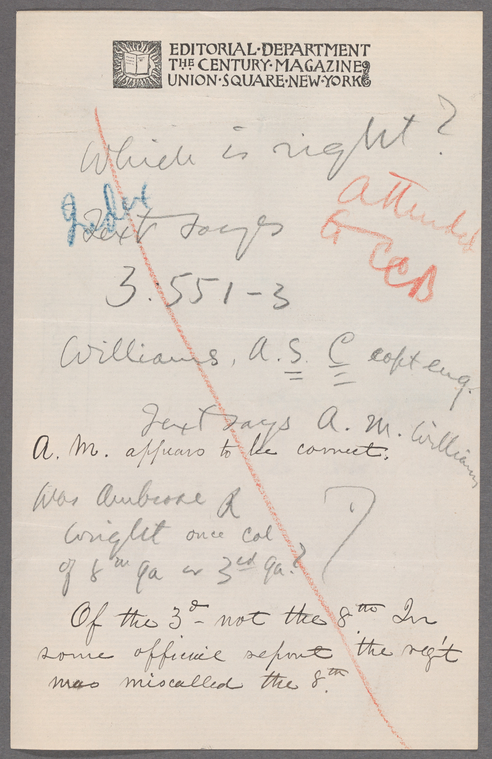 EDITORIAL·DEPARTMENT
THE CENTURY·MAGAZINE
UNION·SQUARE·NEW·YORK
Which is right?
Index
Text says
Attended
to CCB
3.551-3
Williams, A. S. C capt eng.
Text says A. M. Williams
A. M. appears to be correct.
Was Ambrose R
Wright once col
of 8th Ga or 3rd Ga?
?
Of the 3d not the 8th In
some official report the reg't
was miscalled the 8th.